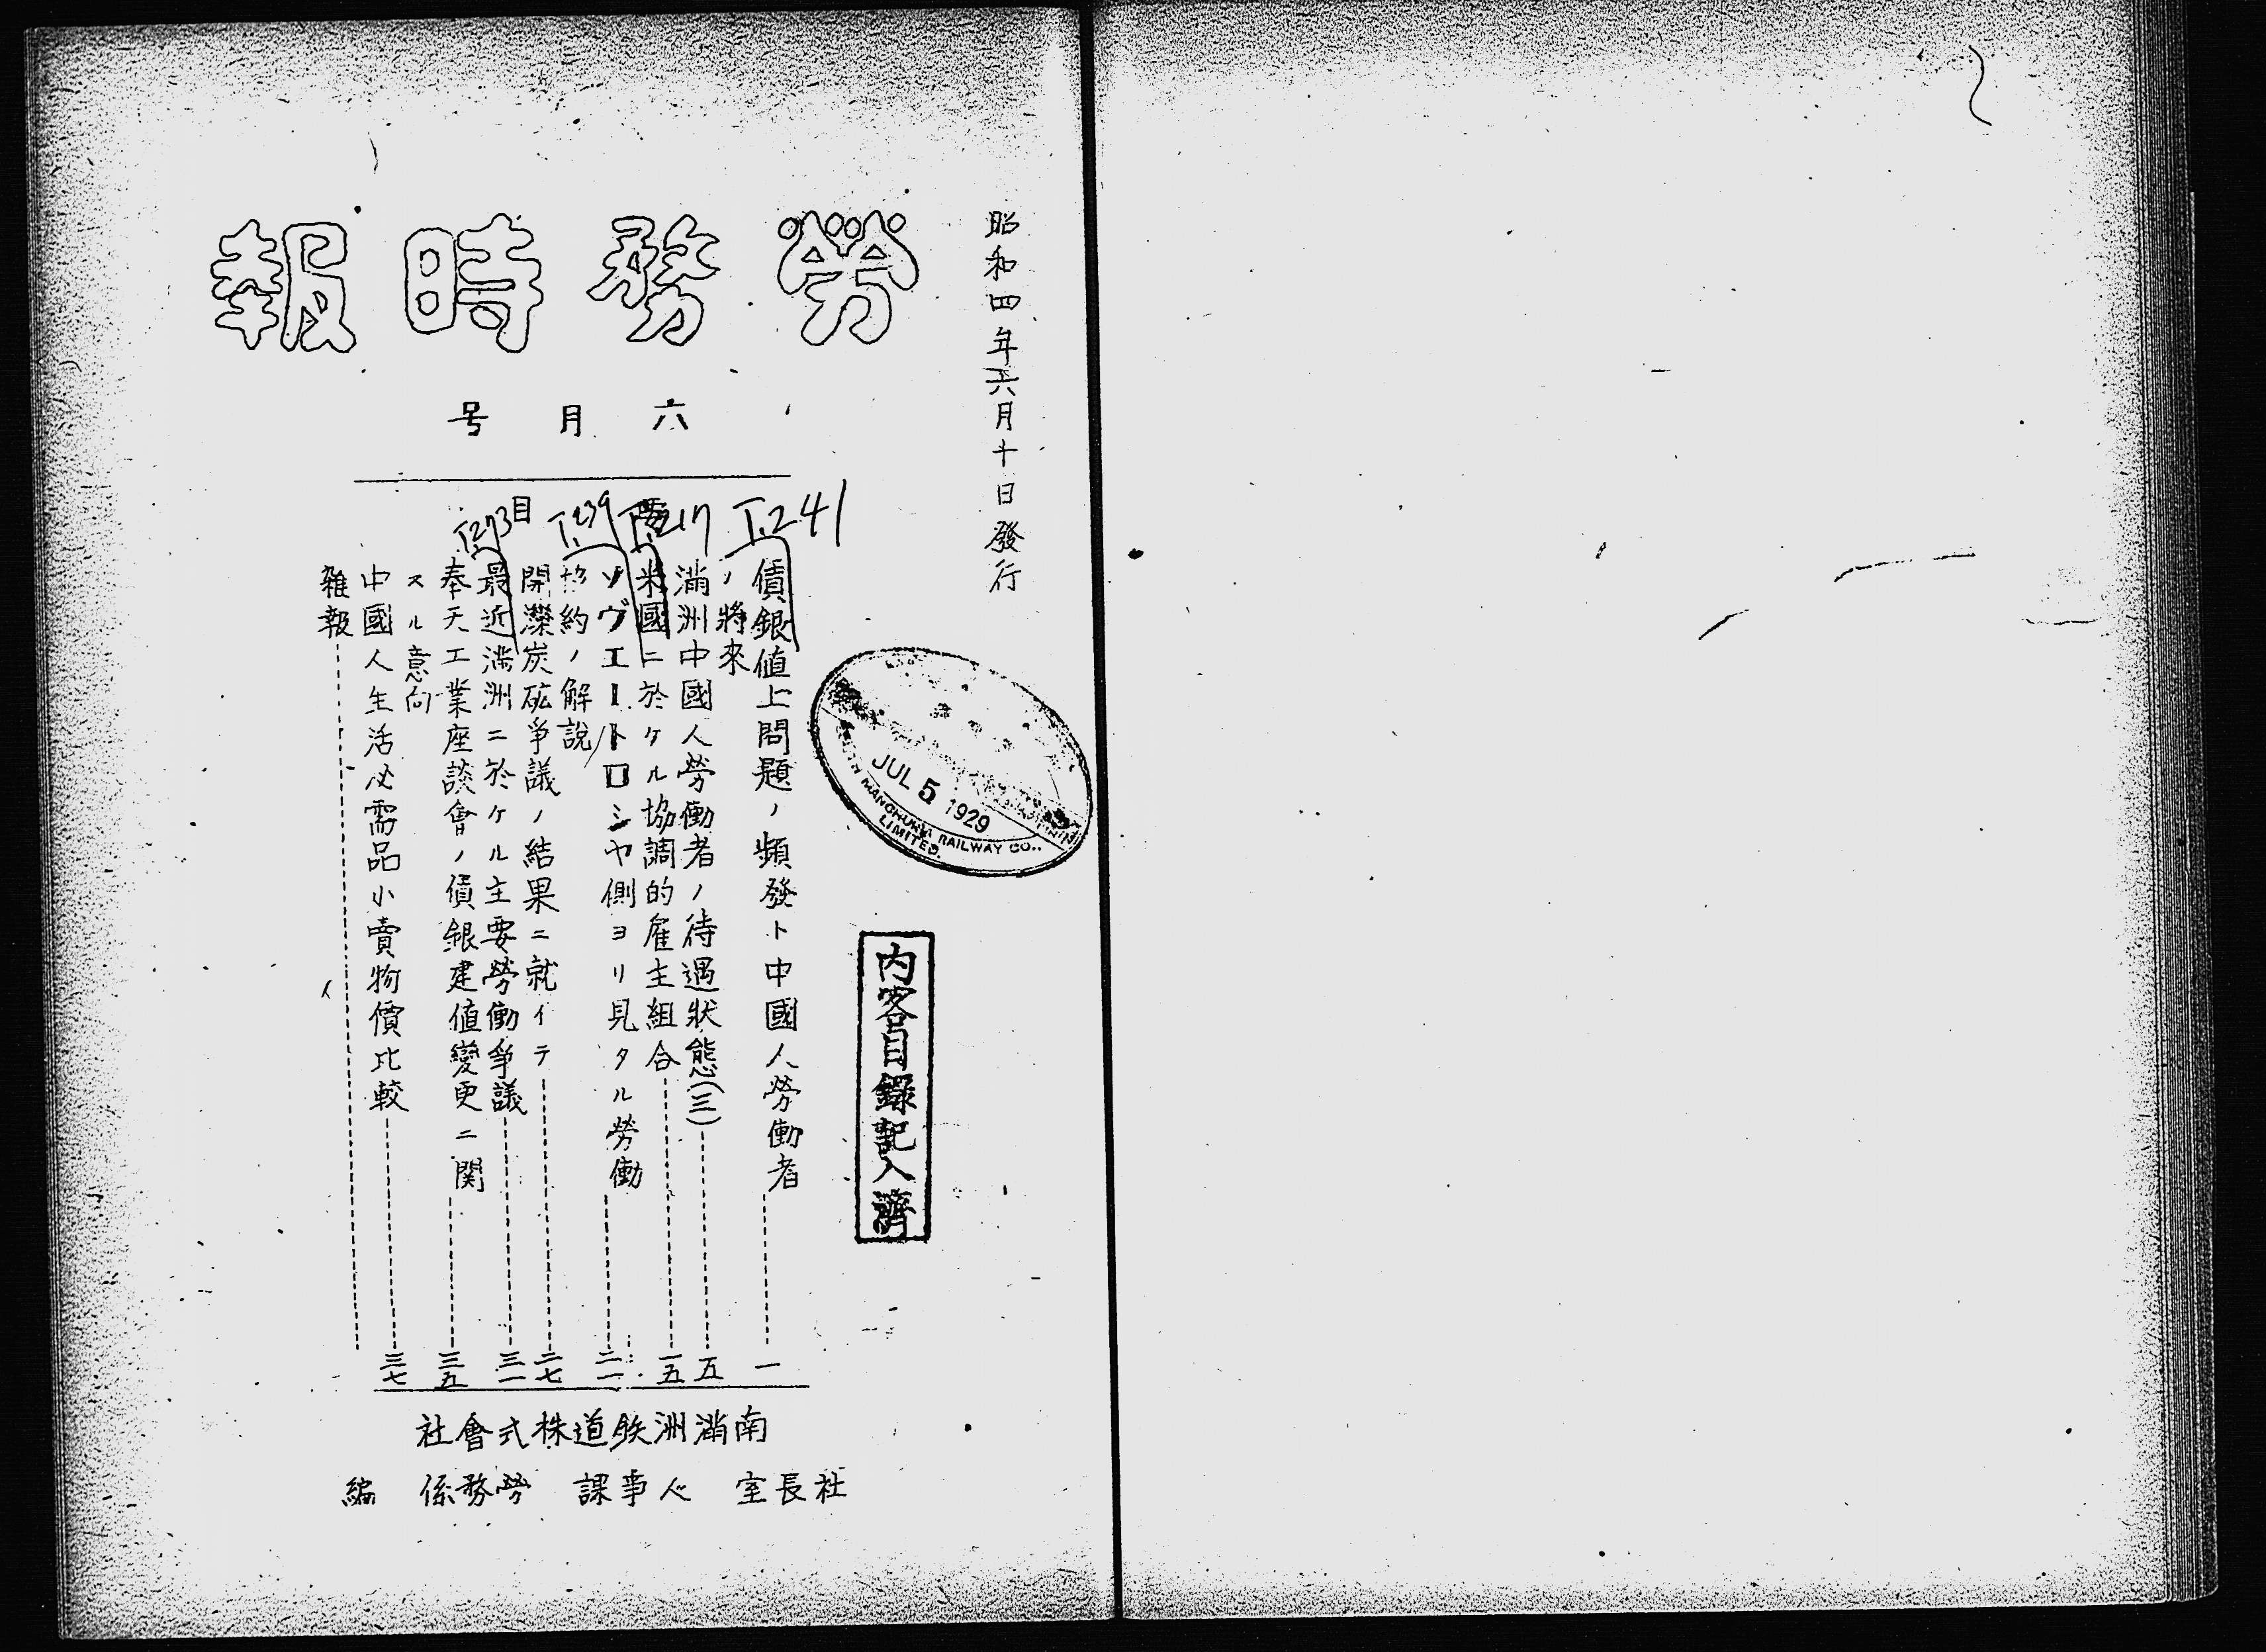 昭和四年六月十日發行
勞務時報
六月号
要目
T.241
T.217
T.239
T.273
賃銀値上問題ノ頻發ト中國人勞働者
ノ將來 一
滿洲中國人勞働者ノ待遇狀態(三) 五
米國ニ於ケル協調的雇主組合 一五
ソヴエートロシヤ側ヨリ見タル勞働
協約ノ解説 二一
開灤炭砿爭議ノ結果ニ就イテ 二七
最近滿洲ニ於ケル主要勞働爭議 三一
奉天工業座談會ノ賃銀建値變更ニ関
スル意向 三五
中國人生活必需品小賣物價比較 三七
雑報
南滿洲鉄道株式會社
社長室 人事課 勞務係 編
JUL 5 1929
MANCHURIA RAILWAY CO., LIMITED.
内容目錄記入濟